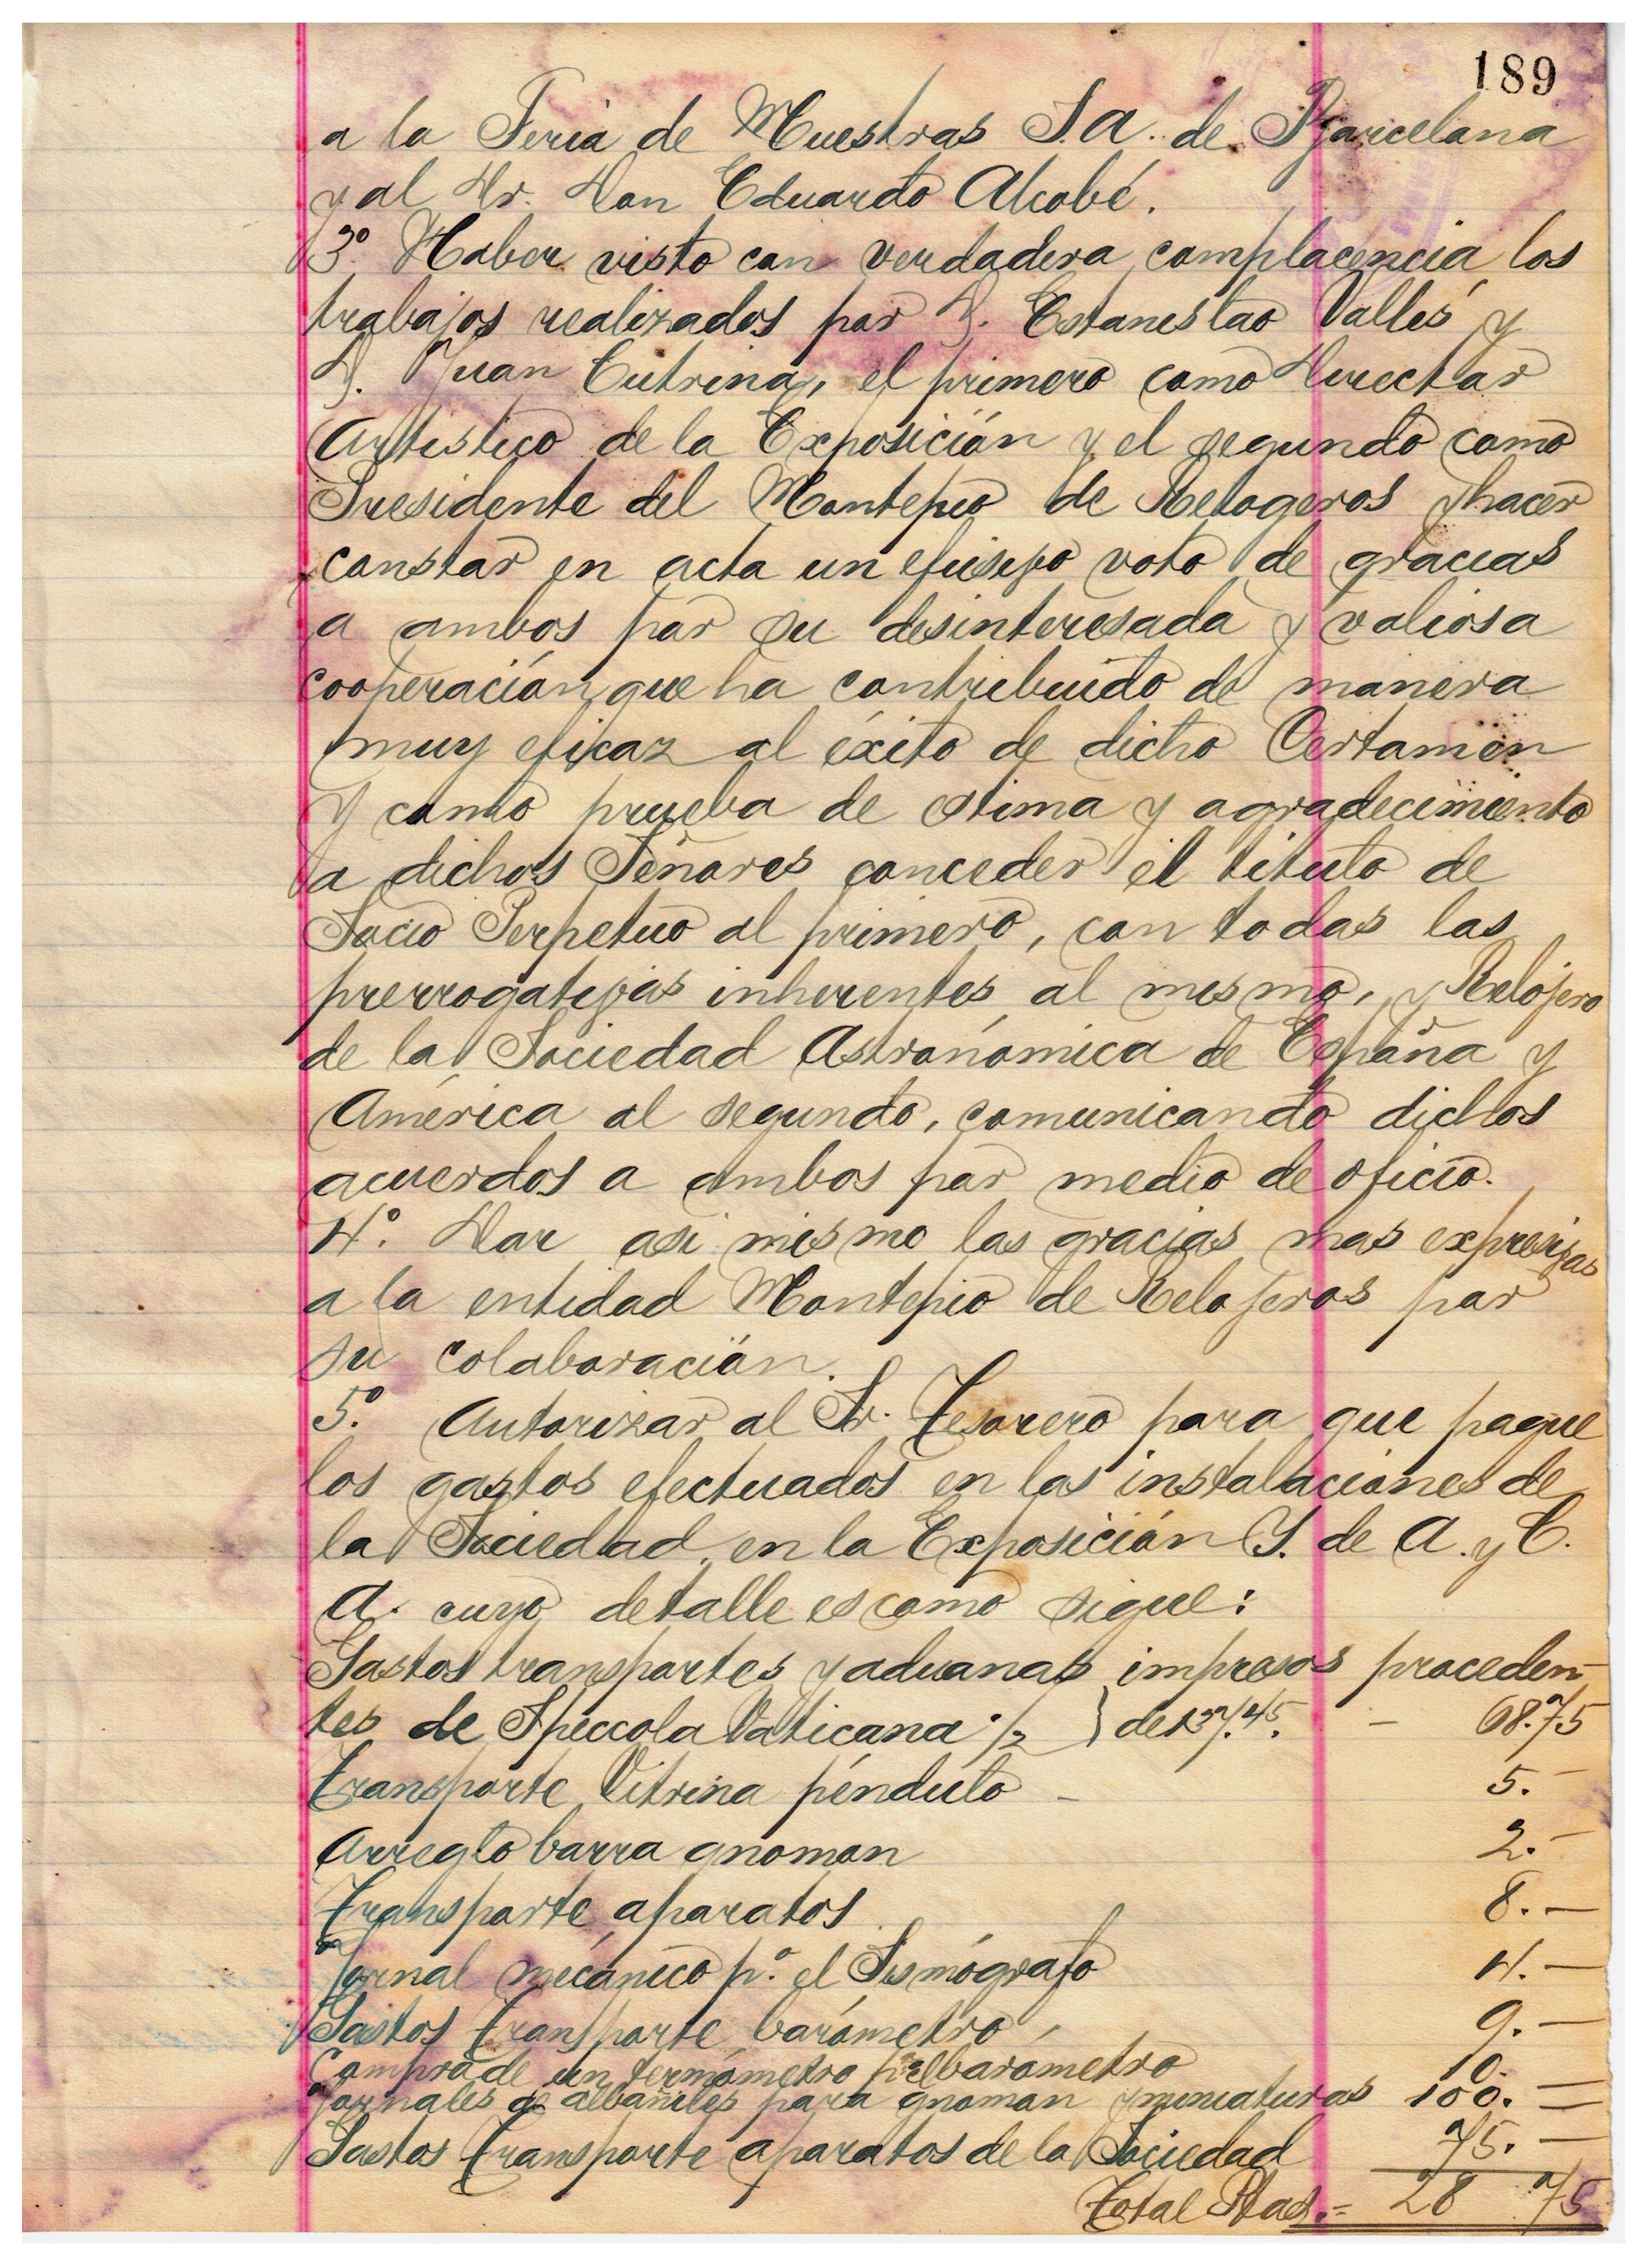 189
a la Feria de Muestras S.A. de Barcelona
y al Dr. Don Eduardo Alcobé.
3º. Haber visto con verdadera complacencia los
trabajos realizados por D. Estanislao Vallés y
D. Juan Cutrina, el primero como Director
Artistico de la Exposición y el segundo como
Presidente del Montepio de Relogeros y hacer
constar en acta un efusivo voto de gracias
a ambos por su desinteresada y valiosa
cooperación, que ha contribuido de manera
muy eficaz al éxito de dicho Certamen
y como prueba de estima y agradecimiento
a dichos Señores conceder el titulo de
Socio Perpetuo al primero, con todas las
prerrogativas inherentes al mismo, y Relojero
de la Sociedad Astronómica de España y
América al segundo, comunicando dichos
acuerdos a ambos por medio de oficio.
4º. Dar asi mismo las gracias mas expresivas
a la entidad Montepio de Relojeros por
su colaboración.
5º. Autorizar al Sr. Tesorero para que pague
los gastos efectuados en las instalaciones de
la Sociedad, en la Exposición I. de A. y C.
A. cuyo detalle es como sigue:
Gastos transportes y aduanas impresos proceden-
tes de Speccola Vaticana ½ } de 137.45. - 68.75
Transporte Vitrina péndulo - 5.-
Arreglo barra gnomon 2.-
Transporte aparatos 8.-
Jornal mécanico pª. el Sismógrafo 4.-
Gastos transporte barómetro 9.-
Compra de un termómetro pª el barometro
Jornales de albañiles para gnomon y miniaturas 100.-
Gastos transporte aparatos de la Sociedad 75.-
Total Ptas.= 28 75